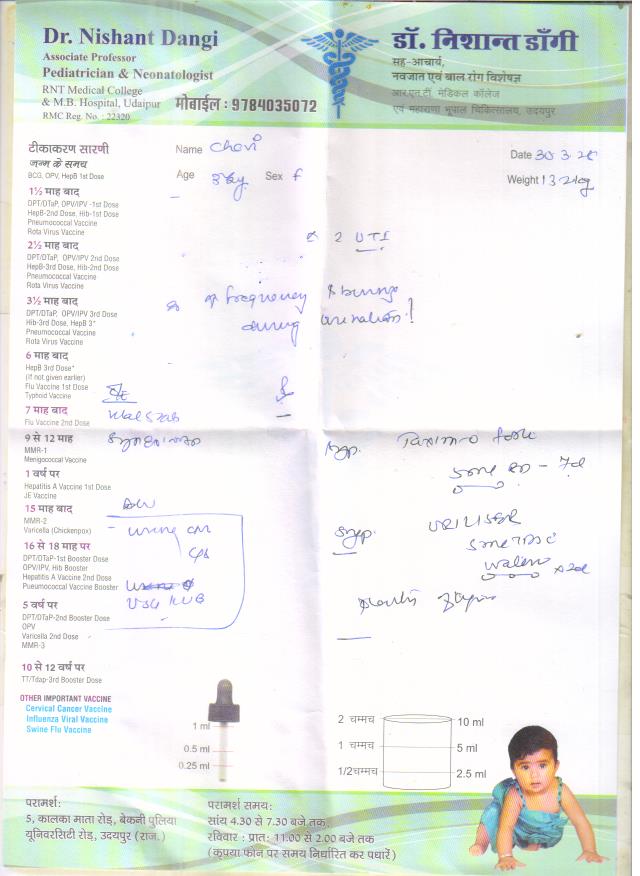 Dr. Nishant Dangi
Associate Professor
Pediatrician & Neonatologist
RNT Medical College
& M.B. Hospital, Udaipur
RMC Reg. No. : 22320
मोबाईल : 9784035072
डॉ. निशान्त डाँगी
सह-आचार्य,
नवजात एवं बाल रोग विशेषज्ञ
आर.एन.टी. मेडिकल कॉलेज
एवं महाराणा भूपाल चिकित्सालय, उदयपुर
Name
Date 30.3.
Age Sex F
Weight 13.2kg
टीकाकरण सारणी
जन्म के समय
BCG, OPV, HepB 1st Dose
1½ माह बाद
DPT/DTaP, OPV/IPV -1st Dose
HepB-2nd Dose, Hib-1st Dose
Pneumococcal Vaccine
Rota Virus Vaccine
2½ माह बाद
DPT/DTaP, OPV/IPV 2nd Dose
HepB-3rd Dose, Hib-2nd Dose
Pneumococcal Vaccine
Rota Virus Vaccine
3½ माह बाद
DPT/DTaP, OPV/IPV 3rd Dose
Hib-3rd Dose, HepB 3*
Pneumococcal Vaccine
Rota Virus Vaccine
6 माह बाद
HepB 3rd Dose*
(if not given earlier)
Flu Vaccine 1st Dose
Typhoid Vaccine
7 माह बाद
Flu Vaccine 2nd Dose
9 से 12 माह
MMR-1
Menigococcal Vaccine
1 वर्ष पर
Hepatitis A Vaccine 1st Dose
JE Vaccine
15 माह बाद
MMR-2
Varicella (Chickenpox)
16 से 18 माह पर
DPT/DTaP-1st Booster Dose
OPV/IPV, Hib Booster
Hepatitis A Vaccine 2nd Dose
Pueumococcal Vaccine Booster
5 वर्ष पर
DPT/DTaP-2nd Booster Dose
OPV
Varicella 2nd Dose
MMR-3
10 से 12 वर्ष पर
TT/Tdap-3rd Booster Dose
OTHER IMPORTANT VACCINE
Cervical Cancer Vaccine
Influenza Viral Vaccine
Swine Flu Vaccine
2 UTI
frequency & burning
during urination
urine
USG KUB
Syp.
5ml BD - 7d
Syp. URILISER
5ml
water
1 ml
0.5 ml
0.25 ml
2 चम्मच 10 ml
1 चम्मच 5 ml
1/2चम्मच 2.5 ml
परामर्श:
5, कालका माता रोड़, बेकनी पुलिया
यूनिवरसिटी रोड़, उदयपुर (राज.)
परामर्श समय:
सांय 4.30 से 7.30 बजे तक,
रविवार : प्रात: 11.00 से 2.00 बजे तक
(कृपया फोन पर समय निर्धारित कर पधारें)